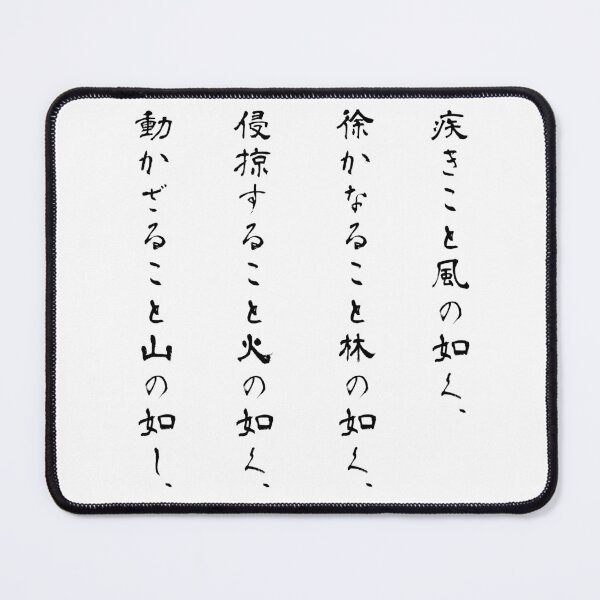 疾きこと風の如く、
徐かなること林の如く、
侵掠すること火の如く、
動かざること山の如し、